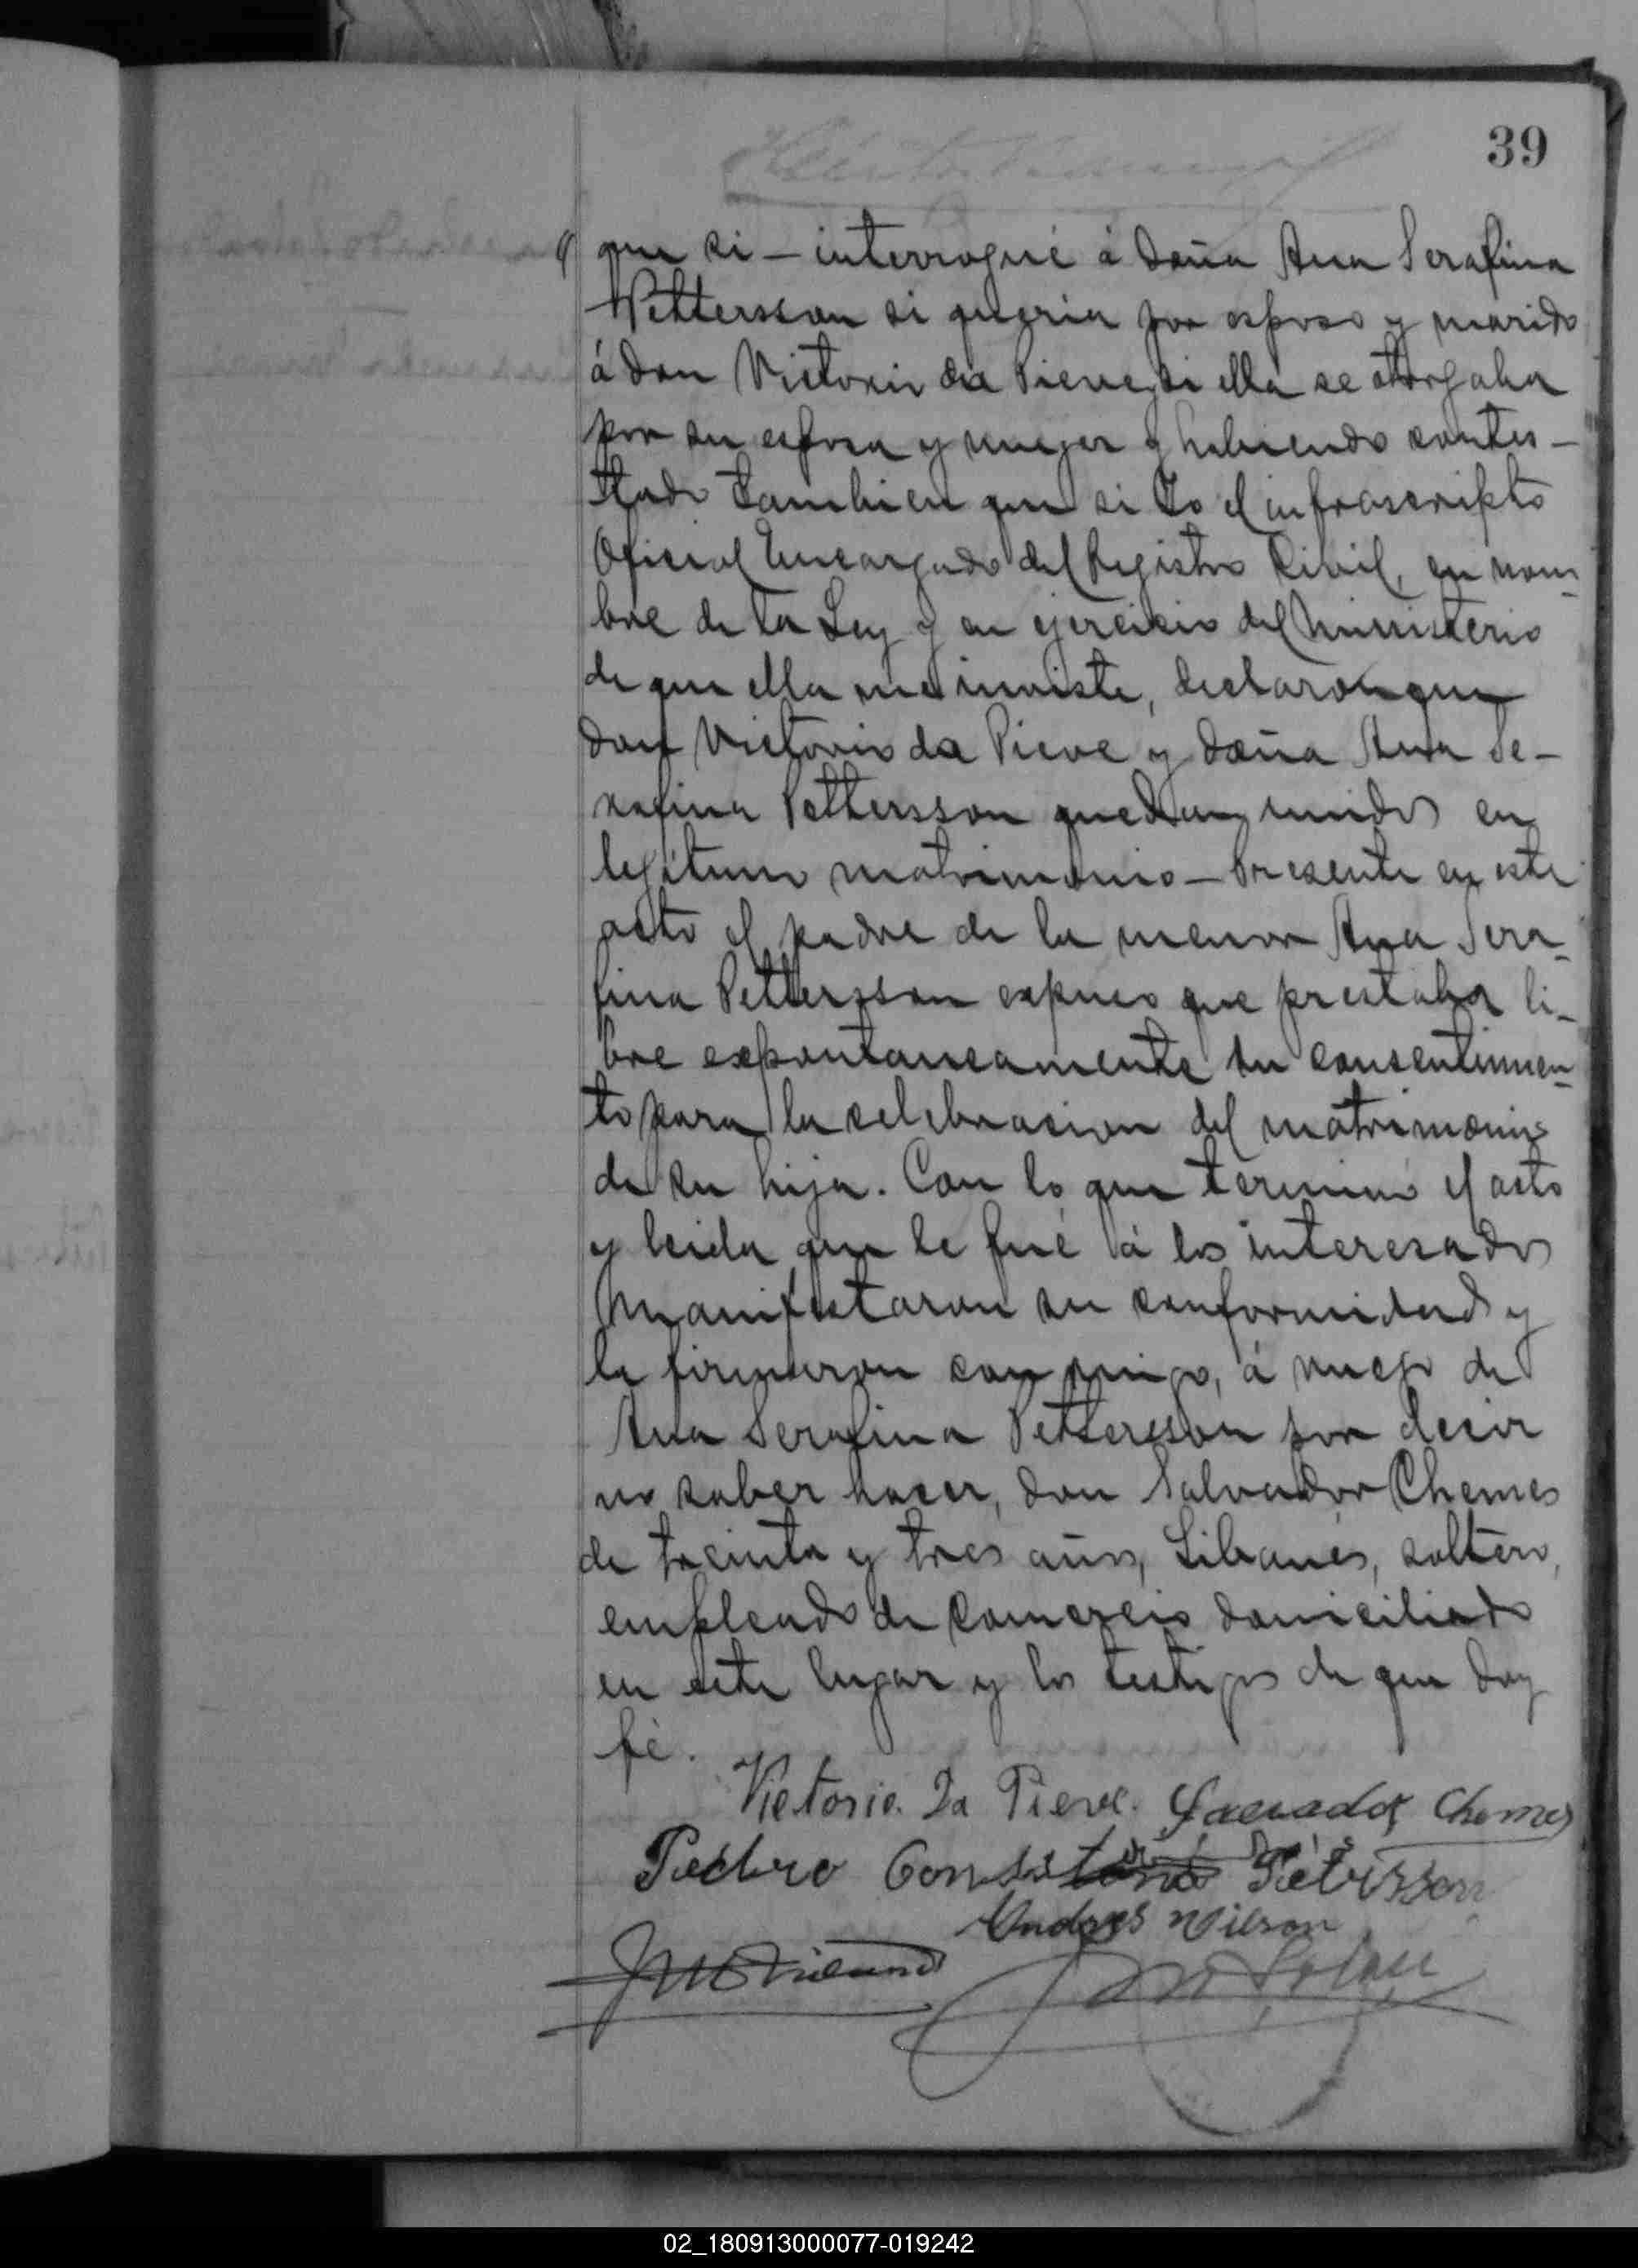 39
que si – interrogué á doña Ana Serafina
Pettersson si queria por esposo y marido
á don Victorio da Pieve, si ella se otorgaba
por su esposa y mujer y habiendo contes-
tado tambien que si Yo el infrascripto
Oficial Encargado del Registro Civil, en nom-
bre de la Ley y en ejercicio del Ministerio
de que ella me inviste, declaro que
don Victorio da Pieve y doña Ana Se-
rafina Pettersson quedan unidos en
legitimo matrimonio – Presente en este
acto el padre de la menor Ana Sera-
fina Pettersson expuso que prestaba li-
bre expontaneamente su consentimien-
to para la celebracion del matrimonio
de su hija. Con lo que terminó el acto
y leida que le fué á los interesados
manifestaron su conformidad y
la firmaron conmigo, á ruego de
Ana Serafina Pettersson por decir
no saber hacer, don Salvador Chemes
de treinta y tres años, Libanés, soltero,
empleado de comercio domiciliado
en este lugar y los testigos de que doy
fé.
Victorio Da Pieve. Salvador Chemes
Pedro
Andres Nilson